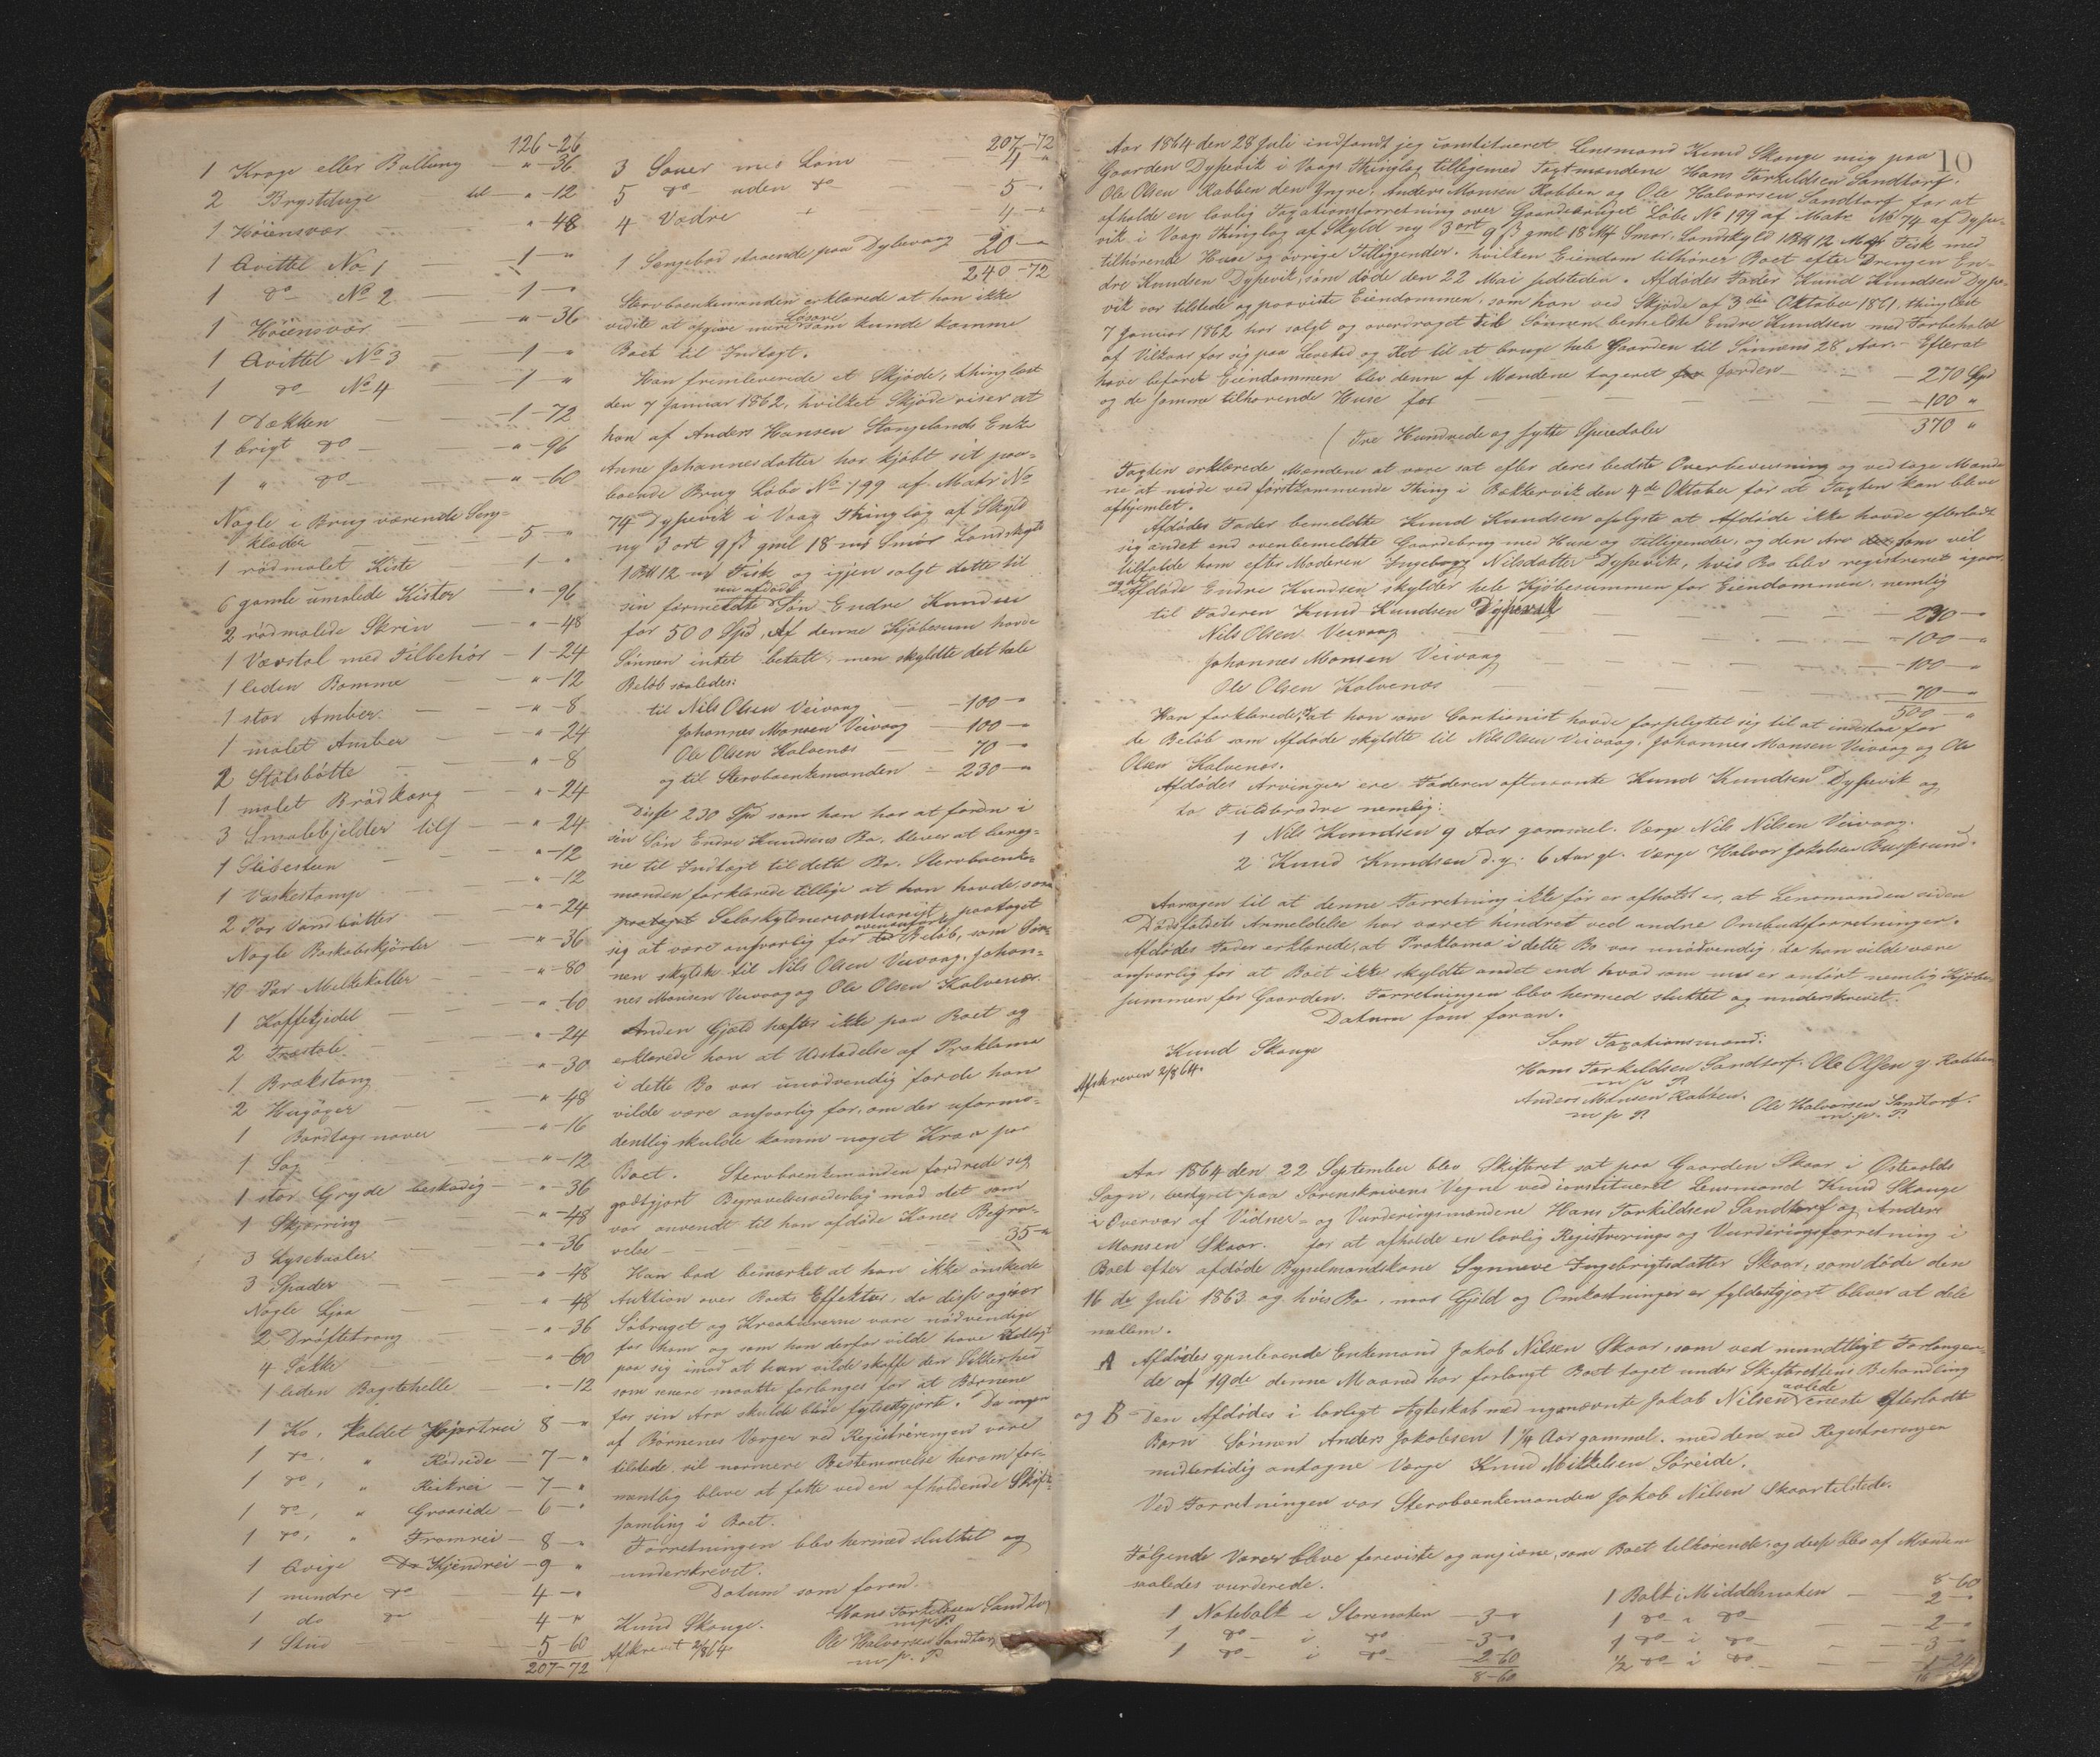 126-26
1 Krage eller Balbung - " - 36
2 Brystduge til - " - 12
1 Höiensvær - " - 48
1 Avittel No 1 - 1 - "
1 do No 2 - 1 - "
1 Höiensvær - " - 36
1 Avittel No 3 - 1 - "
1 do No 4 - 1 - "
1 Dækken - 1 - 72
1 brigt do - " - 96
1 " do - " - 60
Nogle i Brug værende Seng-
klæder - 5 - "
1 rödmalet Kiste - 1 - "
6 gamle umalede Kister - " - 96
2 rödmalede Skrin - " - 48
1 Vævstol med Tilbehör - 1 - 24
1 liden Bomme - " - 12
1 stor Amber - " - 8
1 malet Amber - " - 24
2 Stölsbötte - " - 8
1 malet Brödkorg - " - 24
3 Smalebjelder tils - " - 24
1 Slibesteen - " - 12
1 Vaskestamp - " - 12
2 Par Vandbøtter - " - 24
Nogle Boskabskjörler - " - 36
10 Par Melkekoller - " - 80
1 Kaffekjedel - " - 60
2 Træstole - " - 24
1 Brækstang - " - 30
2 Hugöxer - " - 48
1 Bordlagsnaver - " - 16
1 Sag - " - 12
1 stor Gryde beskadig - " - 36
1 Skjærring - " - 48
3 Lysekaaler - " - 36
3 Spader - " - 48
Nogle Ljaa - " - 48
2 Dröftetroug - " - 36
4 Sække - " - 60
1 liden Bagstehelle - " - 12
1 Ko, kaldet Hjartrei 8 - "
1 do, " Rödside - 7 - "
1 do, " Reikrei - 7 - "
1 do, " Graaside - 6 - "
1 do, " Framrei - 8 - "
1 Qvige Do Kjendrei - 9 "
1 mindre do - 4 - "
1 do do - 4 - "
1 Stud - 5 - 60
207 - 72
207-72
3 Sauer med Lam - 4 - "
5 do uden do - 5 - "
4 Vædre - 4 - "
1 Sengebod staaende paa Dybevaag 20 - "
240 - 72
Stervboenkemanden erklærede at han ikke
vidste at opgive mere Løsøre som kunde komme
Boet til Indtægt.
Han fremleverede et Skjöde, thinglæst
den 7 Januar 1862, hvilket Skjöde viser at
han af Anders Hansen Stangelands Enke
Anne Johannesdatter har kjöbt sit paa-
boende Brug Löbe No 199 af Matr No
74 Dypevik i Vaag Thinglag af Skyld
ny 3 ort 9 ß gml 18 Mk Smör Landskyld
1 B℔ 12 Mk Fisk og igjen solgt dette til
sin formeldte nu afdöde Sön Endre Knudsen
for 500 Spd. Af denne Kjöbesum havde
Sönnen intet betalt, men skyldte det hele
Belöb saaledes:
til Nils Olsen Veivaag - 100 - "
Johannes Monsen Veivaag - 100 - "
Ole Olsen Kalvenæs - 70 - "
og til Stervboenkemanden - 230 - "
Disse 230 Spd som han har at fordre i
sin Sön Endre Knudsens Bo, bliver at bereg-
ne til Indtægt til dette Bo. Stervboenke-
manden forklarede tillige at han havde, som
Selvskyldnercautionist paataget
sig at være ansvarlig for ovenanförte Belöb, som Sön-
nen skyldte til Nils Olsen Veivaag, Johan-
nes Monsen Veivaag og Ole Olsen Kalvenæs.
Anden Gjæld hæfter ikke paa Boet og
erklærede han at Udstædelse af Proklama
i dette Bo var unödvendig fordi han
vilde være ansvarlig for, om der uformo-
dentlig skulde komme noget Krav paa
Boet. Stervboenkemanden fordrede sig
godtgjort Begravelsesvederlag mod det som
var anvendt til han afdöde Kones Begra-
velse - 35 - "
Han bad bemærket at han ikke önskede
Auktion over Boets Effekter, da disse
Söbruget og Kreaturerne vare nödvendige
for ham og som han derfor vilde have Udlagt
paa sig imod at han vilde skaffe den Sikkerhed
som senere maatte forlanges for at Börnene
for sin Arv skulde blive fyldestgjorte. Da ingen
af Börnenes Værger ved Registreringen vare
tilstede, vil nærmere Bestemmelse herom for-
mentlig blive at fatte ved en afholdende Skifte
samling i Boet.
Forretningen blev hermed sluttet og
underskrevet.
Datum som foran.
Knud Skauge. Hans Torkildsen Sandtor
m. p. P.
Afskrevet 2/8 64 Ole Halvorsen Sandtor
m. p. P.
10
Aar 1864 den 28 Juli indfandt jeg constitueret Lensmand Knud Skauge mig paa
Gaarden Dypevik i Vaags Thinglag tilligemed Taxtmændene Hans Torkildsen Sandtorf,
Ole Olsen Rabben den Yngre, Anders Monsen Rabben og Ole Halvorsen Sandtorf for at
afholde en lovlig Taxationsforretning over Gaardsbruget Löbe No 199 af Matr No 74 af Dype-
vik i Vaags Thinglag af Skyld ny 3 ort 9 ß gml 18 Mk Smör, Landskyld 1 B℔ 12 Mk Fisk med
tilhörende Huse og övrige Tilliggender, hvilken Eiendom tilhörer Boet efter Drengen En-
dre Knudsen Dypevik, som döde den 22 Mai sidstleden. Afdödes Fader Knud Knudsen Dype-
vik var tilstede og paaviste Eiendommen, som han ved Skjöde af 3die Oktober 1861, thinglæst
7 Januar 1862 har solgt og overdraget til Sönnen bemeldte Endre Knudsen med Forbehold
af Vilkaar for sig paa Levetid og Ret til at bruge hele Gaarden til Sönnens 28 Aar. - Efterat
have befaret Eiendommen blev denne af Mændene taxeret for Jorden - 270 Spd
og de samme tilhörende Huse for - 100 "
(Tre Hundrede og sytti Speciedaler 370 "
Taxten erklærede Mændene at være sat efter deres bedste Overbeviisning og vedtoge Mænde
ne at möde ved förstkommende Thing i Bækkervik den 4de Oktober for at Taxten kan blive
afhjemlet.
Afdödes Fader bemeldte Knud Knudsen oplyste at Afdöde ikke havde efterladt
sig andet end ovenbemeldte Gaardsbrug med Huse og Tilliggender, og den Arv som vil
tilfalde ham efter Moderen Ingeborg Nilsdatter Dypevik, hvis Bo blev registreret igaar
og at Afdöde Endre Knudsen skylder hele Kjöbesummen for Eiendommen, nemlig
til Faderen Knud Knudsen Dypevik - 230 - "
Nils Olsen Veivaag - 100 - "
Johannes Monsen Veivaag - 100 - "
Ole Olsen Kalvenæs - 70 - "
500 "
Han forklarede, at han som Cautionist havde forpligtet sig til at indstaa for
de Belöb som Afdöde skyldte til Nils Olsen Veivaag, Johannes Monsen Veivaag og Ole
Olsen Kalvenæs.
Afdödes Arvinger ere Faderen oftnævnte Knud Knudsen Dypevik og
to Fuldbrödre nemlig:
1 Nils Knudsen 9 Aar gammel. Værge Nils Nilsen Veivaag.
2 Knud Knudsen d. y. 6 Aar gl. Værge Halvor Jakobsen
Aarsagen til at denne Forretning ikke för er afholdt er, at Lensmanden siden
Dödsfaldets Anmeldelse har været hindret ved andre Ombudsforretninger.
Afdödes Fader erklærede, at Proklama i dette Bo var unödvendig da han vilde være
ansvarlig for at Boet ikke skyldte andet end hvad som nu er anfört nemlig Kjöbe-
summen for Gaarden. Forretningen blev hermed sluttet og underskrevet.
Datum som foran.
Knud Skauge Som Taxationsmænd:
Afskreven 2/8 64. Hans Torkildsen Sandtorf. Ole Olsen y. Rabben
m p P
Anders Monsen Rabben. Ole Halvorsen Sandtorf.
m p P m. p. P.
Aar 1864 den 22 September blev Skifteret sat paa Gaarden Skaar i Østevolds
Sogn, bestyret paa Sorenskriverens Vegne ved constitueret Lensmand Knud Skauge
i Overvær af Vidner- og Vurderingsmændene Hans Torkildsen Sandtorf og Anders
Monsen Skaar. for at afholde en lovlig Registrerings og Vurderingsforretning i
Boet efter afdöde Pygselmandskone Synneve Ingebrigtsdatter Skaar, som döde den
16 de Juli 1863 og hvis Bo, naar Gjæld og Omkostninger er fyldestgjort bliver at dele
mellem.
A Afdödes gjenlevende Enkemand Jakob Nilsen Skaar, som ved mundtligt Forlangen-
de af 19de denne Maaned har forlangt Boet taget under Skifterettens Behandling
og B Den Afdödes i lovligt Ægteskab med nysnævnte Jakob Nilsen avlede eneste efterladte
Barn Sönnen Anders Jakobsen 1 1/4 Aar gammel. med den ved Registreringen
midlertidig antagne Værge Knud Mikkelsen Söreide.
Ved Forretningen var Stervboenkemanden Jakob Nilsen Skaar tilstede.
Fölgende Varer blive foreviste og angivne, som Boet tilhörende, og disse blev af Mændene
saaledes vurderede.
1 Notebalk i Storenoten - 3 - "
1 do i do - 3 - "
1 do i do - 2 - 60
8 - 60
8 - 60
1 Balk i Middelnoten - 2 - "
1 do i do - 2 - "
1 do i do - 3 - "
1/2 do i do - 1 - 24